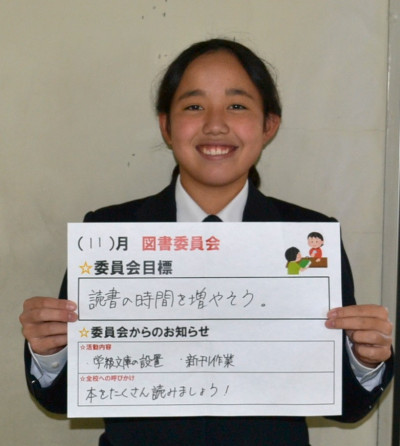 (11)月 図書委員会
☆委員会目標
読書の時間を増やそう。
☆委員会からのお知らせ
☆活動内容
・学級文庫の設置 ・新刊作業
☆全校への呼びかけ
本をたくさん読みましょう!